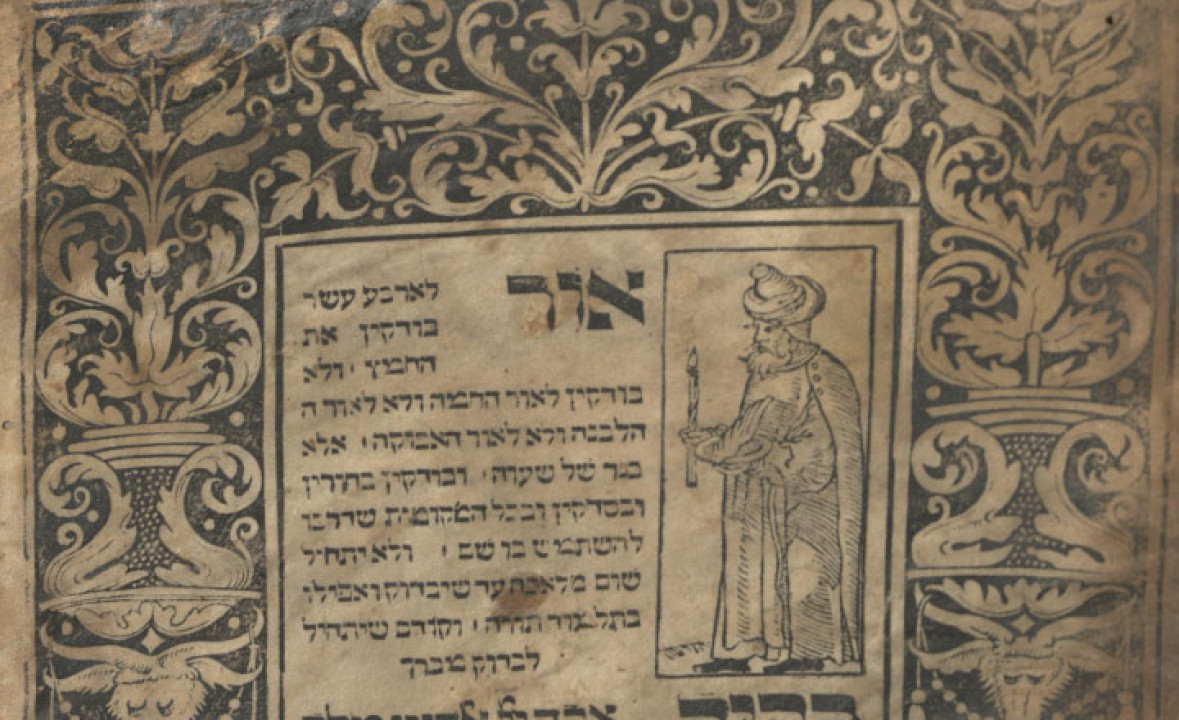 אור לארבע עשר
בודקין את
החמץ ׳ ולא
בודקין לאור החמה ולא לאורה
הלבנה ולא לאור האבוקה ׳ אלא
בנר של שעוה ׳ ובודקין בחורין
ובסדקין ובכל המקומות שדרכו
להשתמש בו שם ׳ ולא יתחיל
שום מלאכה עד שיבדוק ואפילו
בתלמוד תורה ׳ וקודם שיתחיל
לבדוק מברך
ברוך